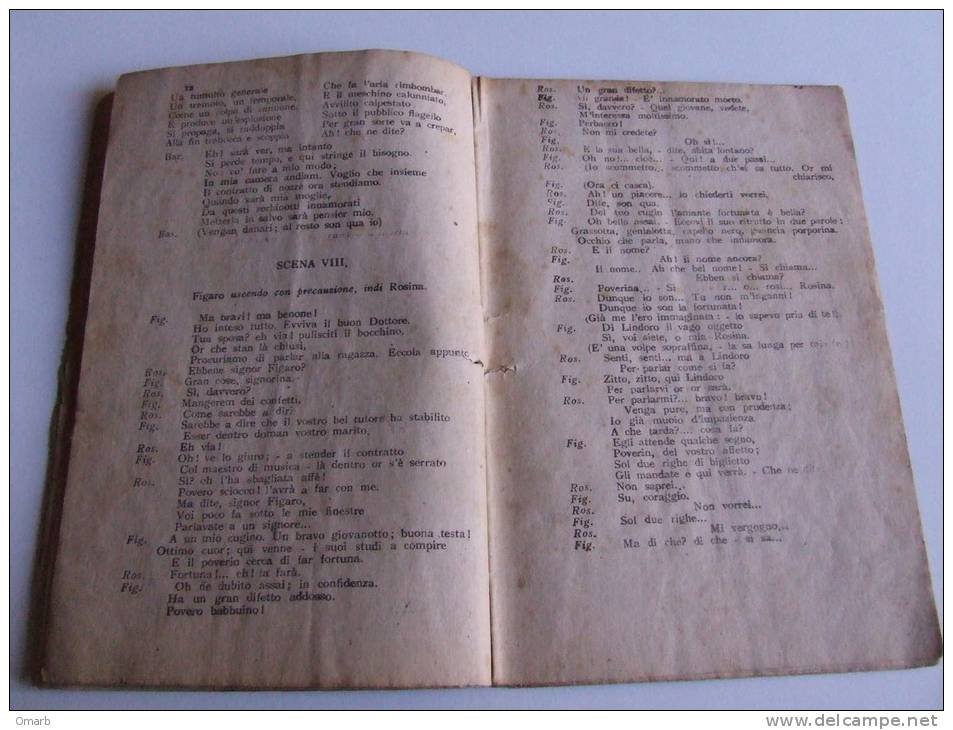 12
Un tumulto generale
Un tremuoto, un temporale,
Come un colpo di cannone,
E produce un'esplosione
Si propaga, si raddoppia
Alla fin trabocca e scoppia
Che fa l'aria rimbombar,
E il meschino calunniato,
Avvilito calpestato
Sotto il pubblico flagello
Per gran sorte va a crepar,
Ah! che ne dite?
Bar. Eh! sarà ver, ma intanto
Si perde tempo, e qui stringe il bisogno.
No: vo' fare a mio modo;
In mia camera andiam. Voglio che insieme
Il contratto di nozze ora stendiamo.
Quando sarà mia moglie,
Da questi zerbinotti innamorati
Metterla in salvo sarà pensier mio.
Bas. (Vengan danari; al resto son qua io)
SCENA VIII,
Figaro uscendo con precauzione, indi Rosina.
Fig. Ma bravi! ma benone!
Ho inteso tutto. Evviva il buon Dottore.
Tua sposa? eh via! pulisciti il bocchino,
Or che stan là chiusi,
Procuriamo di parlar alla ragazza. Eccola appunto
Ros. Ebbene signor Figaro?
Fig. Gran cose, signorina.
Ros. Sì, davvero?
Fig. Mangerem dei confetti.
Ros. Come sarebbe a dir?
Fig. Sarebbe a dire che il vostro bel tutore ha stabilito
Esser dentro doman vostro marito,
Ros. Eh via!
Fig. Oh! ve lo giuro; - a stender il contratto
Col maestro di musica - là dentro or s'è serrato
Ros. Sì? oh l'ha sbagliata affè!
Povero sciocco! l'avrà a far con me.
Ma dite, signor Figaro,
Voi poco fa sotto le mie finestre
Parlavate a un signore...
Fig. A un mio cugino. Un bravo giovanotto; buona testa!
Ottimo cuor; qui venne - i suoi studi a compire
E il poverio cerca di far fortuna.
Ros. Fortuna!... eh! la farà.
Fig. Oh ne dubito assai; in confidenza.
Ha un gran difetto addosso.
Povero babbuino!
Ros. Un gran difetto?...
Fig. Ah grande! - E' innamorato morto.
Ros. Sì, davvero? - Quel giovane, vedete,
M'interessa moltissimo.
Fig. Perbacco!
Ros. Non mi credete?
Fig. Oh sì!...
Ros. E la sua bella, - dite, abita lontano?
Fig. Oh no!... cioè... - Qui! a due passi...
Ros. (Io scommetto... scommetto ch'ei sa tutto. Or mi
chiarisco,
Fig. (Ora ci casca).
Ros. Ah! un piacere... io chiederti vorrei.
Fig. Dite, son qua.
Ros. Del tuo cugin l'amante fortunata è bella?
Fig. Oh bella assai. Eccovi il suo ritratto in due parole:
Grassotta, genialotta, capello nero, guancia porporina.
Occhio che parla, mano che innamora.
Ros. E il nome?
Fig. Ah! il nome ancora?
Il nome.. Ah che bel nome! - Si chiama...
Ros. Ebben si chiama?
Fig. Poverina... - Si r... o... rosi... Rosina.
Ros. Dunque io son... Tu non m'inganni!
Dunque io son la fortunata!
(Già me l'ero immaginata: - io sapevo pria di te).
Fig. Di Lindoro il vago oggetto
Sì, voi siete, o mia Rosina.
(E' una volpe sopraffina, - la sa lunga per
Ros. Senti, senti... ma a Lindoro
Per parlar come si fa?
Fig. Zitto, zitto, qui Lindoro
Per parlarvi or or sarà.
Ros. Per parlarmi?... bravo! bravo!
Venga pure, ma con prudenza;
Io già muoio d'impazienza
A che tarda?.... cosa fa?
Fig. Egli attende qualche segno,
Poverin, del vostro affetto;
Sol due righe di biglietto
Gli mandate e qui verrà. - Che ne dite?
Ros. Non saprei...
Fig. Su, coraggio.
Ros. Non vorrei...
Fig. Sol due righe...
Ros. Mi vergogno,..
Fig. Ma di che? di che - si sa...
Omarb
www.delcampe.net